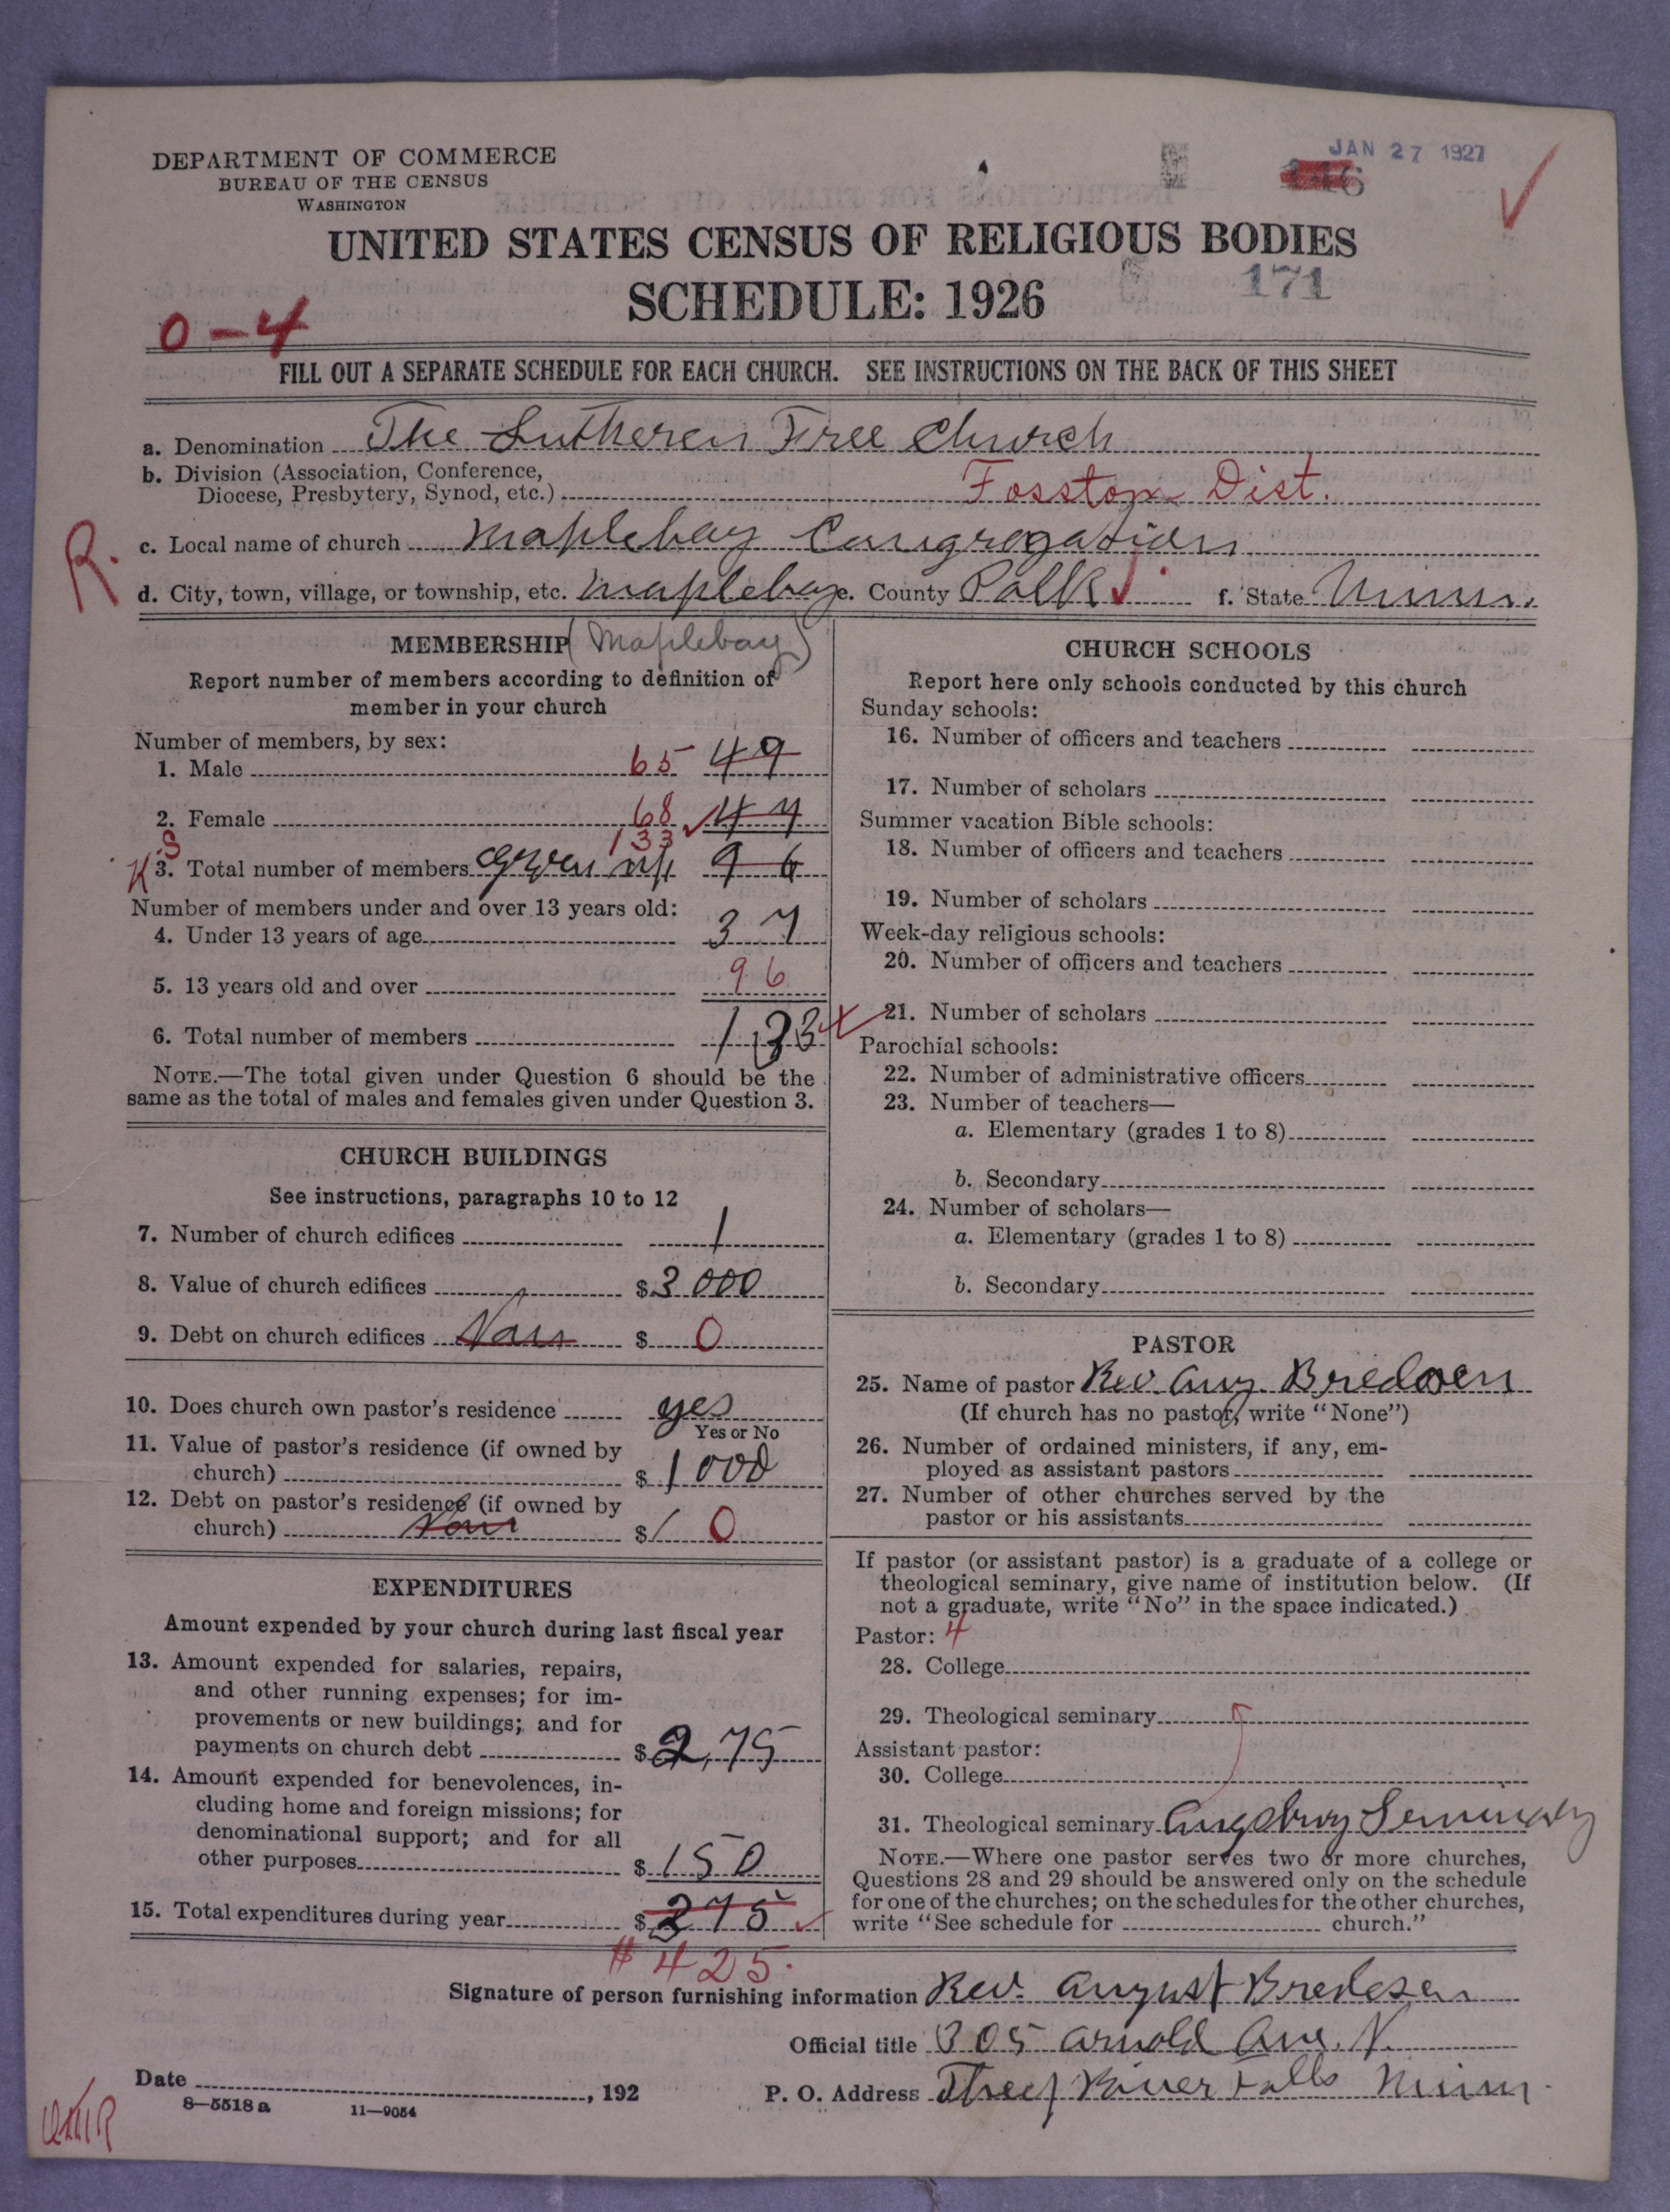 DEPARTMENT OF COMMERCE
BUREAU OF THE CENSUS
WASHINGTON
JAN 27 1927
UNITED STATES CENSUS OF RELIGIOUS BODIES
SCHEDULE: 1926
171
0-4
FILL OUT A SEPARATE SCHEDULE FOR EACH CHURCH. SEE INSTRUCTIONS ON THE BACK OF THIS SHEET
a. Denomination The Lutheren Free Church
b. Division (Association, Conference,
Diocese, Presbytery, Synod, etc.) Fosston Dist.
R.
c. Local name of church Maplebay Congregation
d. City, town, village, or township, etc. Maplebay e. County Polk f. State Minn.
MEMBERSHIP (Maplebay)
Report number of members according to definition of
member in your church
Number of members, by sex:
1. Male 65 49
2. Female 68 47
133
3. Total number of members 96
Number of members under and over 13 years old:
4. Under 13 years of age 37
5. 13 years old and over 96
6. Total number of members 133
NOTE.—The total given under Question 6 should be the
same as the total of males and females given under Question 3.
CHURCH BUILDINGS
See instructions, paragraphs 10 to 12
7. Number of church edifices 1
8. Value of church edifices $3000
9. Debt on church edifices $ 0
10. Does church own pastor's residence yes
Yes or No
11. Value of pastor's residence (if owned by
church) $1000
12. Debt on pastor's residence (if owned by
church) $ 0
EXPENDITURES
Amount expended by your church during last fiscal year
13. Amount expended for salaries, repairs,
and other running expenses; for im-
provements or new buildings; and for
payments on church debt $275
14. Amount expended for benevolences, in-
cluding home and foreign missions; for
denominational support; and for all
other purposes $150
15. Total expenditures during year $275
$425.
CHURCH SCHOOLS
Report here only schools conducted by this church
Sunday schools:
16. Number of officers and teachers
17. Number of scholars
Summer vacation Bible schools:
18. Number of officers and teachers
19. Number of scholars
Week-day religious schools:
20. Number of officers and teachers
21. Number of scholars
Parochial schools:
22. Number of administrative officers
23. Number of teachers—
a. Elementary (grades 1 to 8)
b. Secondary
24. Number of scholars—
a. Elementary (grades 1 to 8)
b. Secondary
PASTOR
25. Name of pastor Rev. Aug. Bredesen
(If church has no pastor, write "None")
26. Number of ordained ministers, if any, em-
ployed as assistant pastors
27. Number of other churches served by the
pastor or his assistants
If pastor (or assistant pastor) is a graduate of a college or
theological seminary, give name of institution below. (If
not a graduate, write "No" in the space indicated.)
Pastor: 4
28. College
29. Theological seminary
Assistant pastor:
30. College
31. Theological seminary Augsburg Seminary
NOTE.—Where one pastor serves two or more churches,
Questions 28 and 29 should be answered only on the schedule
for one of the churches; on the schedules for the other churches,
write "See schedule for church."
Signature of person furnishing information Rev. August Bredesen
Official title 305 Arnold Ave. N.
Date , 192
P. O. Address Theef River Falls Minn.
8—5518 a 11—9054